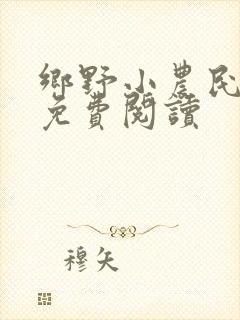 鄉野小農民
免費閱讀
穆矢